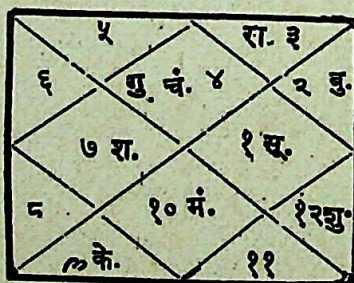 ५ रा. ३
६ गु. चं. ४ २ बु.
७ श. १ सू.
८ १० मं. १२ शु.
९ के. ११